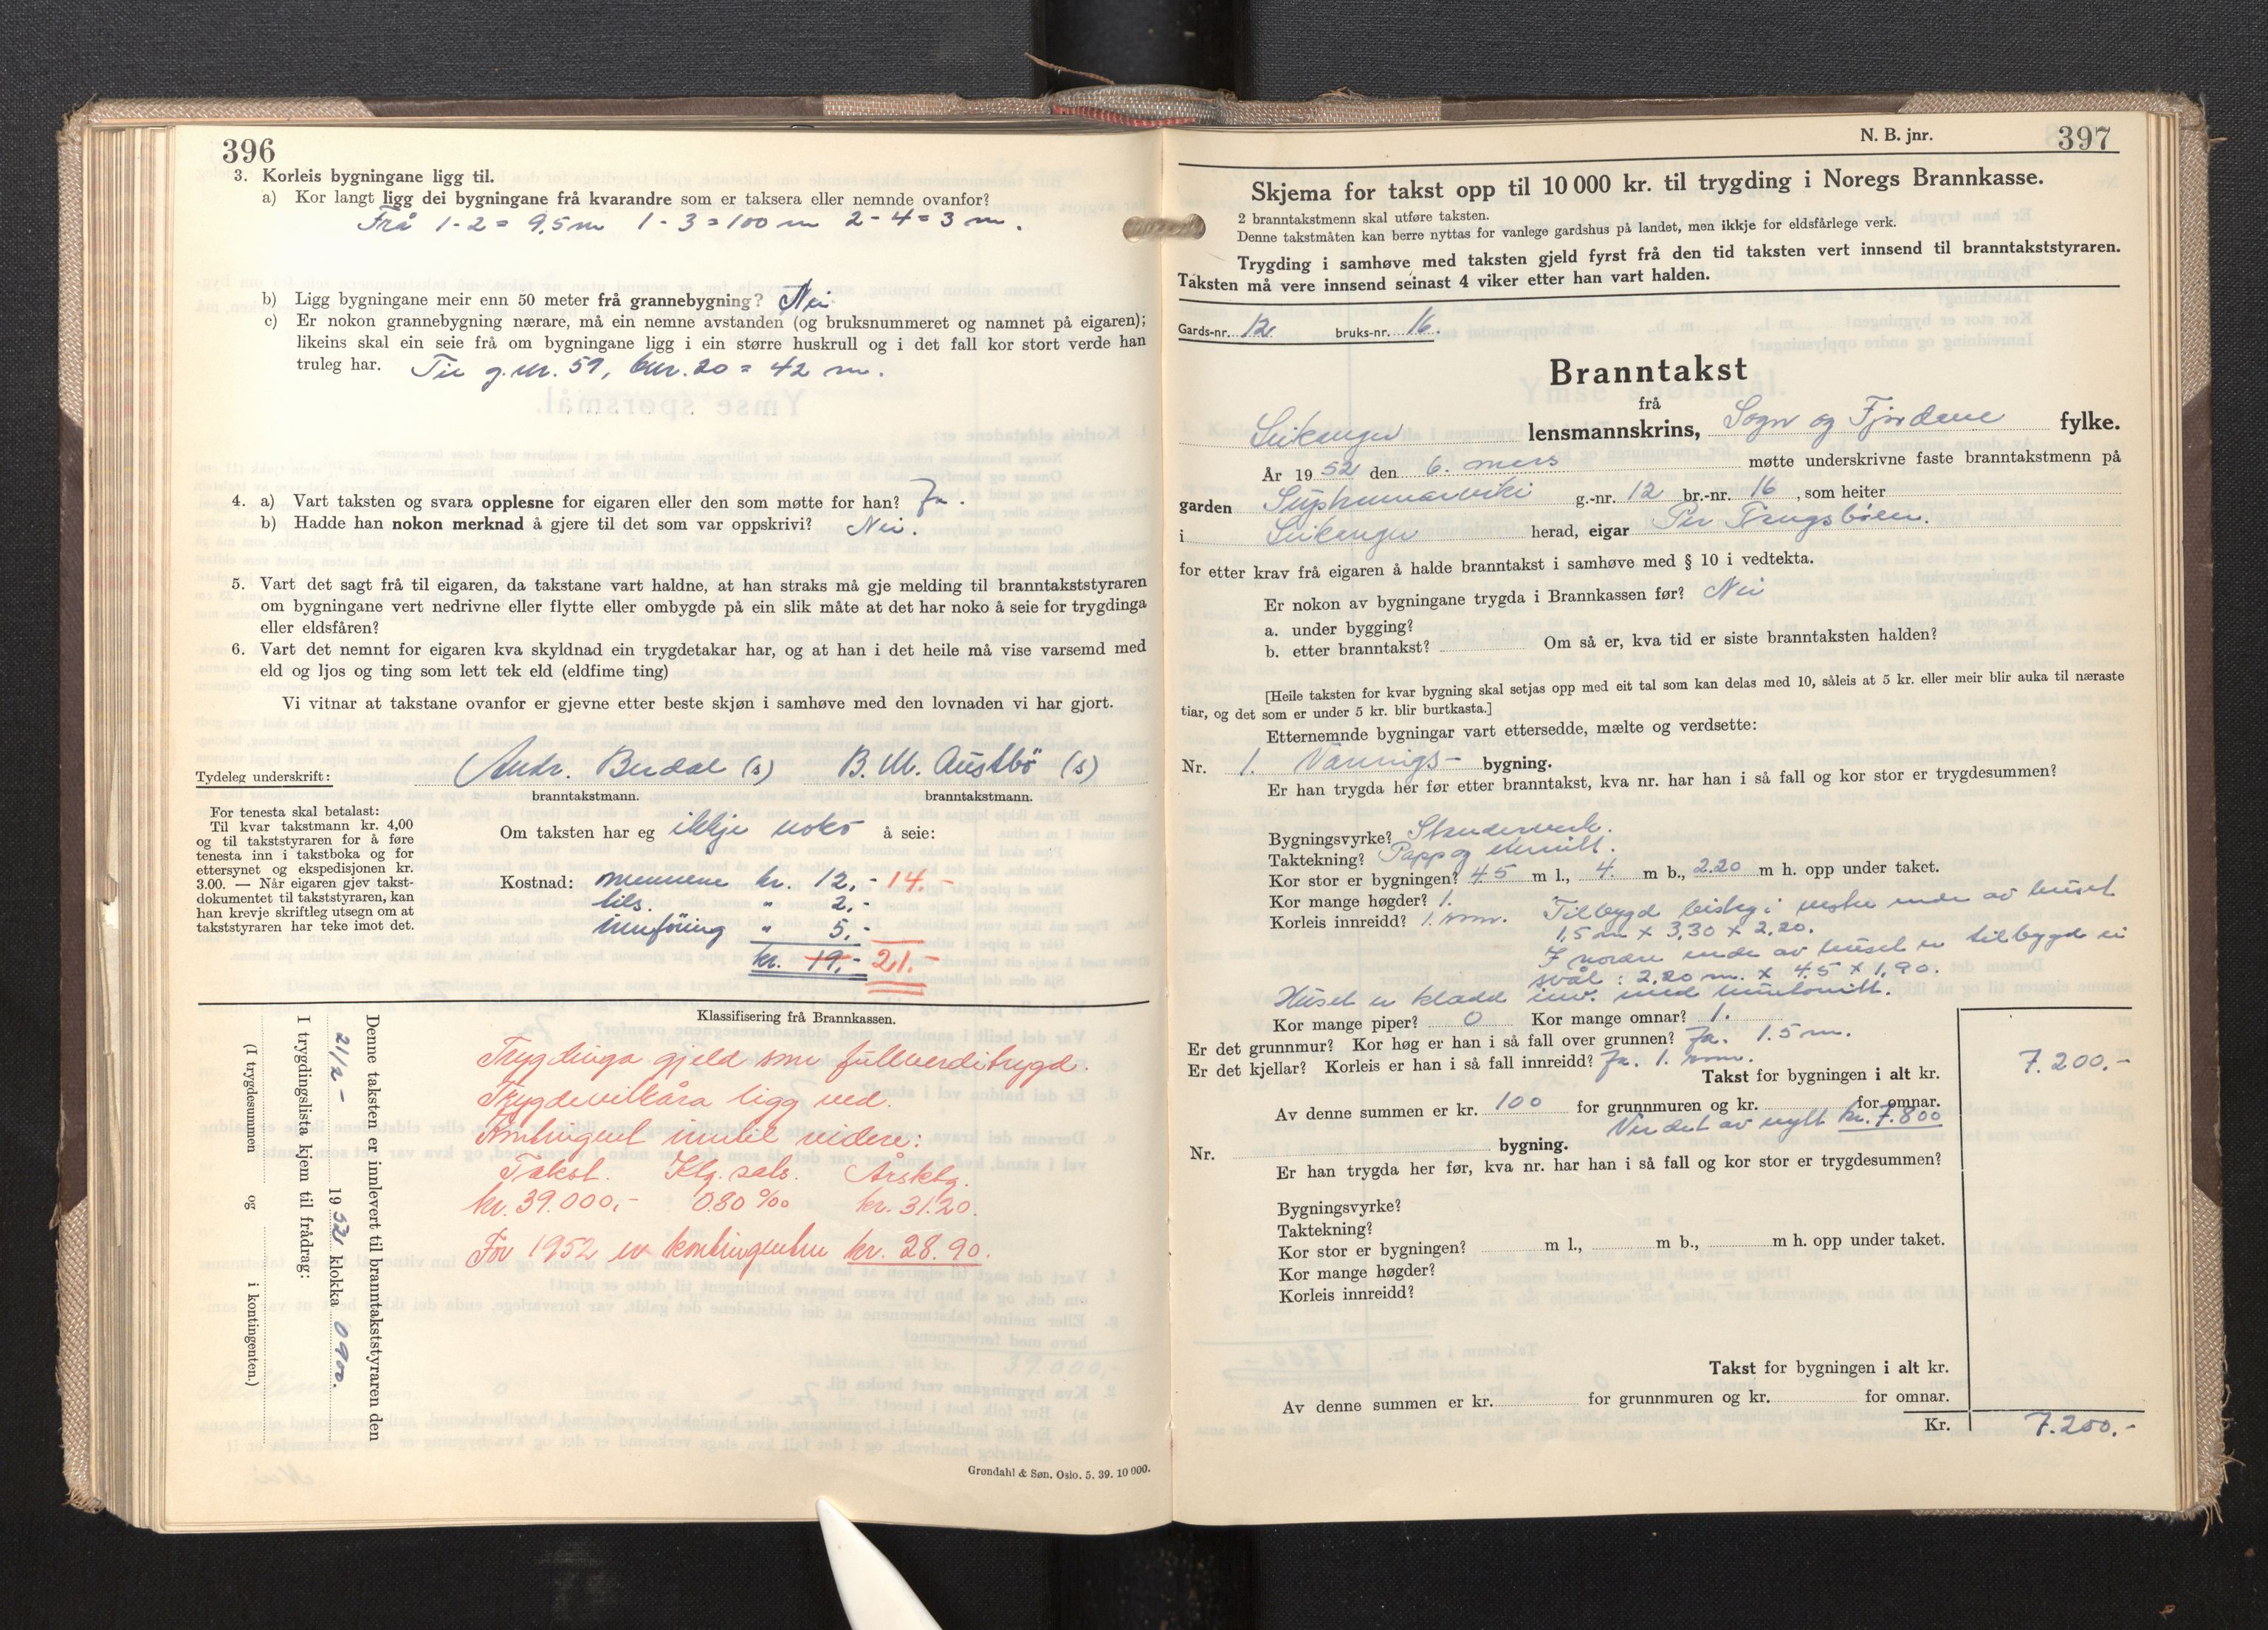 396
3. Korleis bygningane ligg til.
a) Kor langt ligg dei bygningane frå kvarandre som er taksera eller nemnde ovanfor?
Frå 1-2 = 9,5 m 1-3 = 100 m 2-4 = 3 m.
b) Ligg bygningane meir enn 50 meter frå grannebygning? Nei
c) Er nokon grannebygning nærare, må ein nemne avstanden (og bruksnummeret og namnet på eigaren);
likeins skal ein seie frå om bygningane ligg i ein større huskrull og i det fall kor stort verde han
truleg har. Til g.nr. 59, bnr. 20 = 42 m.
4. a) Vart taksten og svara opplesne for eigaren eller den som møtte for han? Ja.
b) Hadde han nokon merknad å gjere til det som var oppskrivi? Nei.
5. Vart det sagt frå til eigaren, da takstane vart haldne, at han straks må gje melding til branntakststyraren
om bygningane vert nedrivne eller flytte eller ombygde på ein slik måte at det har noko å seie for trygdinga
eller eldsfåren?
6. Vart det nemnt for eigaren kva skyldnad ein trygdetakar har, og at han i det heile må vise varsemd med
eld og ljos og ting som lett tek eld (eldfime ting)
Vi vitnar at takstane ovanfor er gjevne etter beste skjøn i samhøve med den lovnaden vi har gjort.
Tydeleg underskrift: Andr. Berdal (s) B. M. Austbö (s)
branntakstmann. branntakstmann.
For tenesta skal betalast:
Til kvar takstmann kr. 4,00
og til takststyraren for å føre
tenesta inn i takstboka og for
ettersynet og ekspedisjonen kr.
3.00. — Når eigaren gjev takst-
dokumentet til takststyraren, kan
han krevje skriftleg utsegn om at
takststyraren har teke imot det.
Om taksten har eg ikkje noko å seie:
Kostnad: mennene kr. 12,- 14.-
tils. " 2,-
innföring " 5,-
kr. 19,- 21.-
Klassifisering frå Brannkassen.
Trygdinga gjeld som fullverditrygd.
Trygdevilkåra ligg ved.
Kontingent inntil vidare:
Takst. Ktg.sats. Årsktg.
kr. 39.000,- 0.80 ‰ kr. 31.20.
For 1952 er kontingenten kr. 28.90.
Denne taksten er innlevert til branntakststyraren den
21/2 - 1952 klokka 0900.
I trygdingslista kjem til frådrag:
(I trygdesummen og i kontingenten.)
Grøndahl & Søn, Oslo. 5. 39. 10 000.
N. B. jnr. 397
Skjema for takst opp til 10 000 kr. til trygding i Noregs Brannkasse.
2 branntakstmenn skal utføre taksten.
Denne takstmåten kan berre nyttas for vanlege gardshus på landet, men ikkje for eldsfårlege verk.
Trygding i samhøve med taksten gjeld fyrst frå den tid taksten vert innsend til branntakststyraren.
Taksten må vere innsend seinast 4 viker etter han vart halden.
Gards-nr. 12 bruks-nr. 16.
Branntakst
frå
Leikanger lensmannskrins, Sogn og Fjordane fylke.
År 1952 den 6. mars møtte underskrivne faste branntakstmenn på
garden g.-nr. 12 br.-nr. 16, som heiter
i Leikanger herad, eigar Per
for etter krav frå eigaren å halde branntakst i samhøve med § 10 i vedtekta.
Er nokon av bygningane trygda i Brannkassen før? Nei
a. under bygging?
b. etter branntakst? Om så er, kva tid er siste branntaksten halden?
[Heile taksten for kvar bygning skal setjas opp med eit tal som kan delas med 10, såleis at 5 kr. eller meir blir auka til næraste
tiar, og det som er under 5 kr. blir burtkasta.]
Etternemnde bygningar vart ettersedde, mælte og verdsette:
Nr. 1. Vånings- bygning.
Er han trygda her før etter branntakst, kva nr. har han i så fall og kor stor er trygdesummen?
Bygningsvyrke? Standerverk.
Taktekning? Papp og eternitt.
Kor stor er bygningen? 4.5 m l., 4. m b., 2.20 m h. opp under taket.
Kor mange høgder? 1.
Korleis innreidd? 1. rom. Tilbygd bislag i vestre ende av huset
1,5 m x 3,30 x 2,20.
I nordre ende av huset er tilbygd ei
svål: 2,20 m. x 4.5 x 1,90.
Huset er kledd inv. med huntonitt.
Kor mange piper? 0 Kor mange omnar? 1.
Er det grunnmur? Kor høg er han i så fall over grunnen? Ja. 1.5 m.
Er det kjellar? Korleis er han i så fall innreidd? Ja. 1. rom.
Takst for bygningen i alt kr. 7.200,-
Av denne summen er kr. 100 for grunnmuren og kr. for omnar.
Verdet av nytt kr. 7.800
Nr. bygning.
Er han trygda her før, kva nr. har han i så fall og kor stor er trygdesummen?
Bygningsvyrke?
Taktekning?
Kor stor er bygningen? m l., m b., m h. opp under taket.
Kor mange høgder?
Korleis innreidd?
Takst for bygningen i alt kr.
Av denne summen er kr. for grunnmuren og kr. for omnar.
Kr. 7.200,-